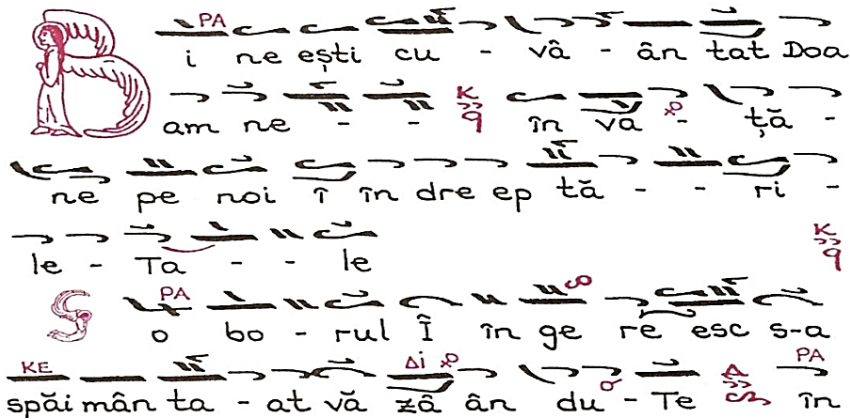 PA
Bi ne ești cu - vâ - ân tat Doa
am ne - - în vă - ță -
K
q
ne pe noi î în dre ep tă - - ri -
le - Ta - - le
K
q
PA
So bo - rul Î în ge re esc s-a
KE Δi
spăi mân ta - at vă zâ ân du - Te în
Δ PA